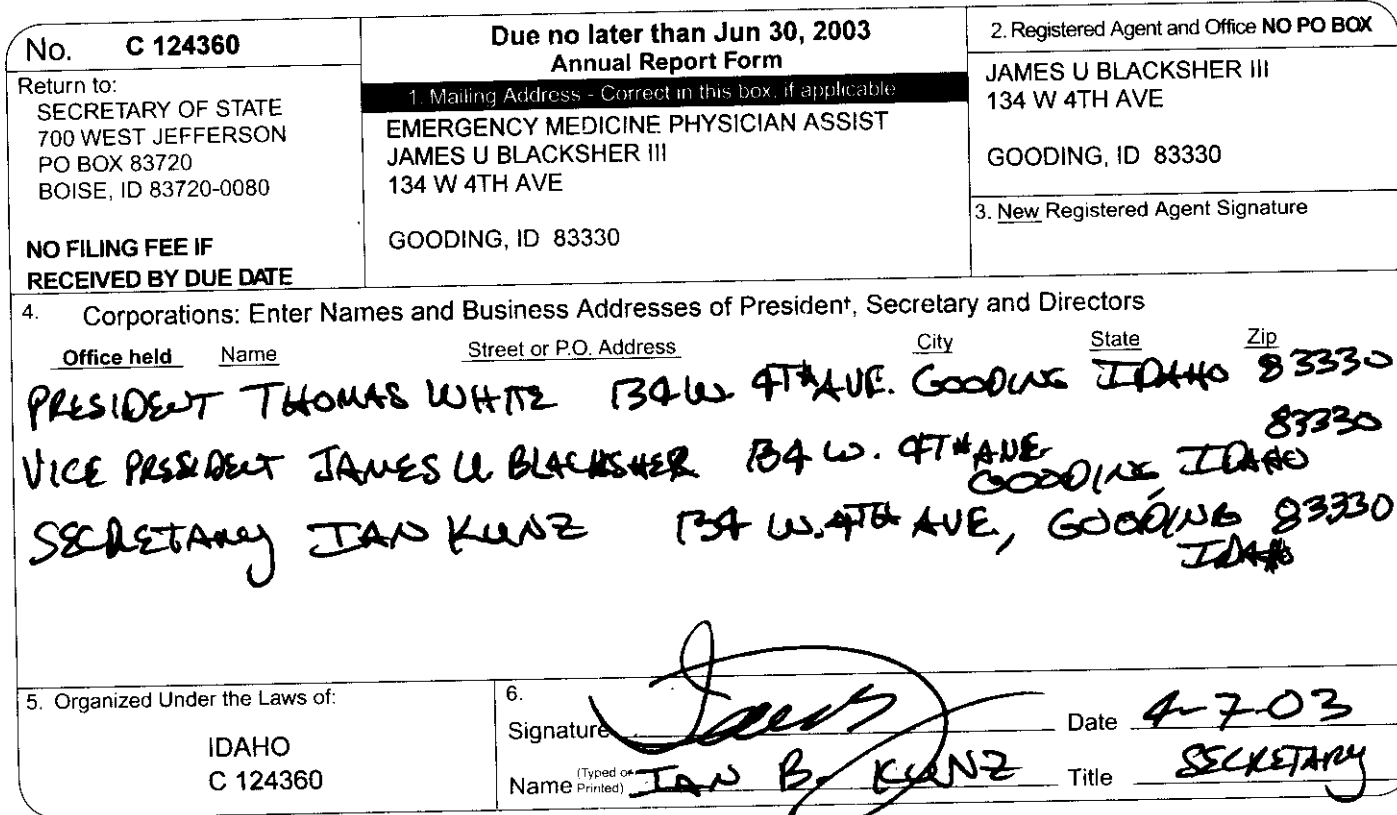 No. C 124360
Return to:
SECRETARY OF STATE
700 WEST JEFFERSON
PO BOX 83720
BOISE, ID 83720-0080
NO FILING FEE IF
RECEIVED BY DUE DATE
Due no later than Jun 30, 2003
Annual Report Form
1. Mailing Address - Correct in this box, if applicable
EMERGENCY MEDICINE PHYSICIAN ASSIST
JAMES U BLACKSHER III
134 W 4TH AVE
GOODING, ID 83330
2. Registered Agent and Office NO PO BOX
JAMES U BLACKSHER III
134 W 4TH AVE
GOODING, ID 83330
3. New Registered Agent Signature
4. Corporations: Enter Names and Business Addresses of President, Secretary and Directors
Office held Name Street or P.O. Address City State Zip
PRESIDENT THOMAS WHITE 134 W. 4TH AVE. GOODING IDAHO 83330
VICE PRESIDENT JAMES U BLACKSHER 134 W. 4TH AVE. GOODING, IDAHO 83330
SECRETARY IAN KUNZ 134 W. 4TH AVE, GOODING IDAHO 83330
5. Organized Under the Laws of:
IDAHO
C 124360
6.
Signature Date 4-7-03
Name (Typed or Printed) IAN B. KUNZ Title SECRETARY